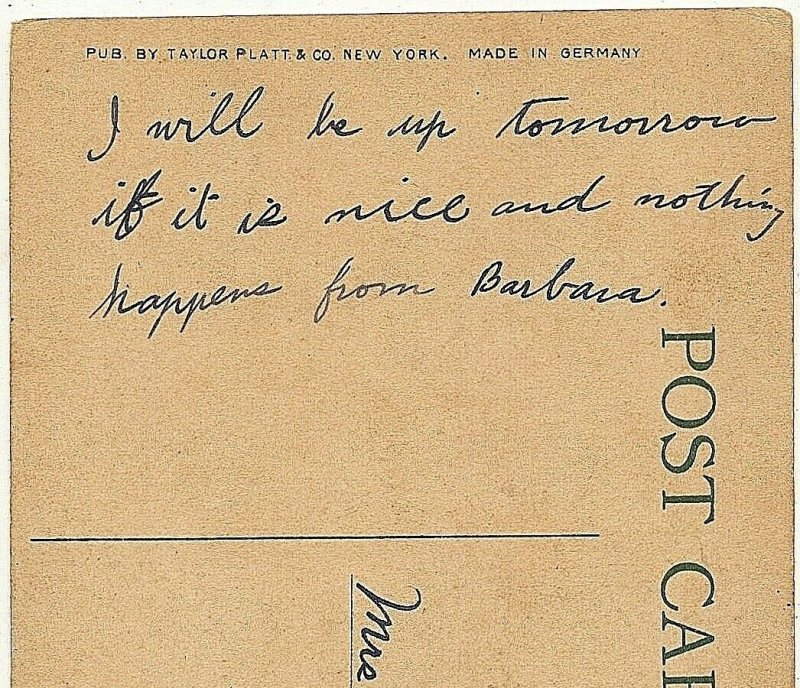 PUB. BY TAYLOR PLATT & CO. NEW YORK. MADE IN GERMANY
I will be up tomorrow
if it is nice and nothing
happens from Barbara.
POST CAR
Mrs